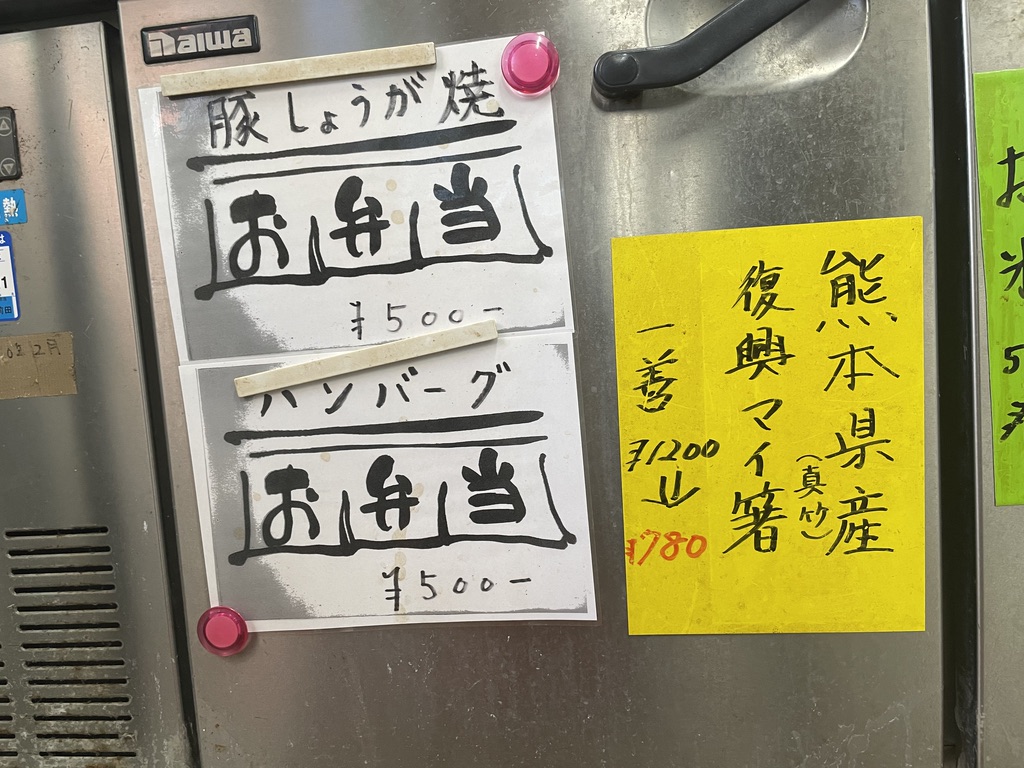 Daiwa
豚しょうが焼
お弁当
¥500-
ハンバーグ
お弁当
¥500-
熊本県産
(真竹)
復興マイ箸
一善
¥1200
¥780
熱
12月
お米